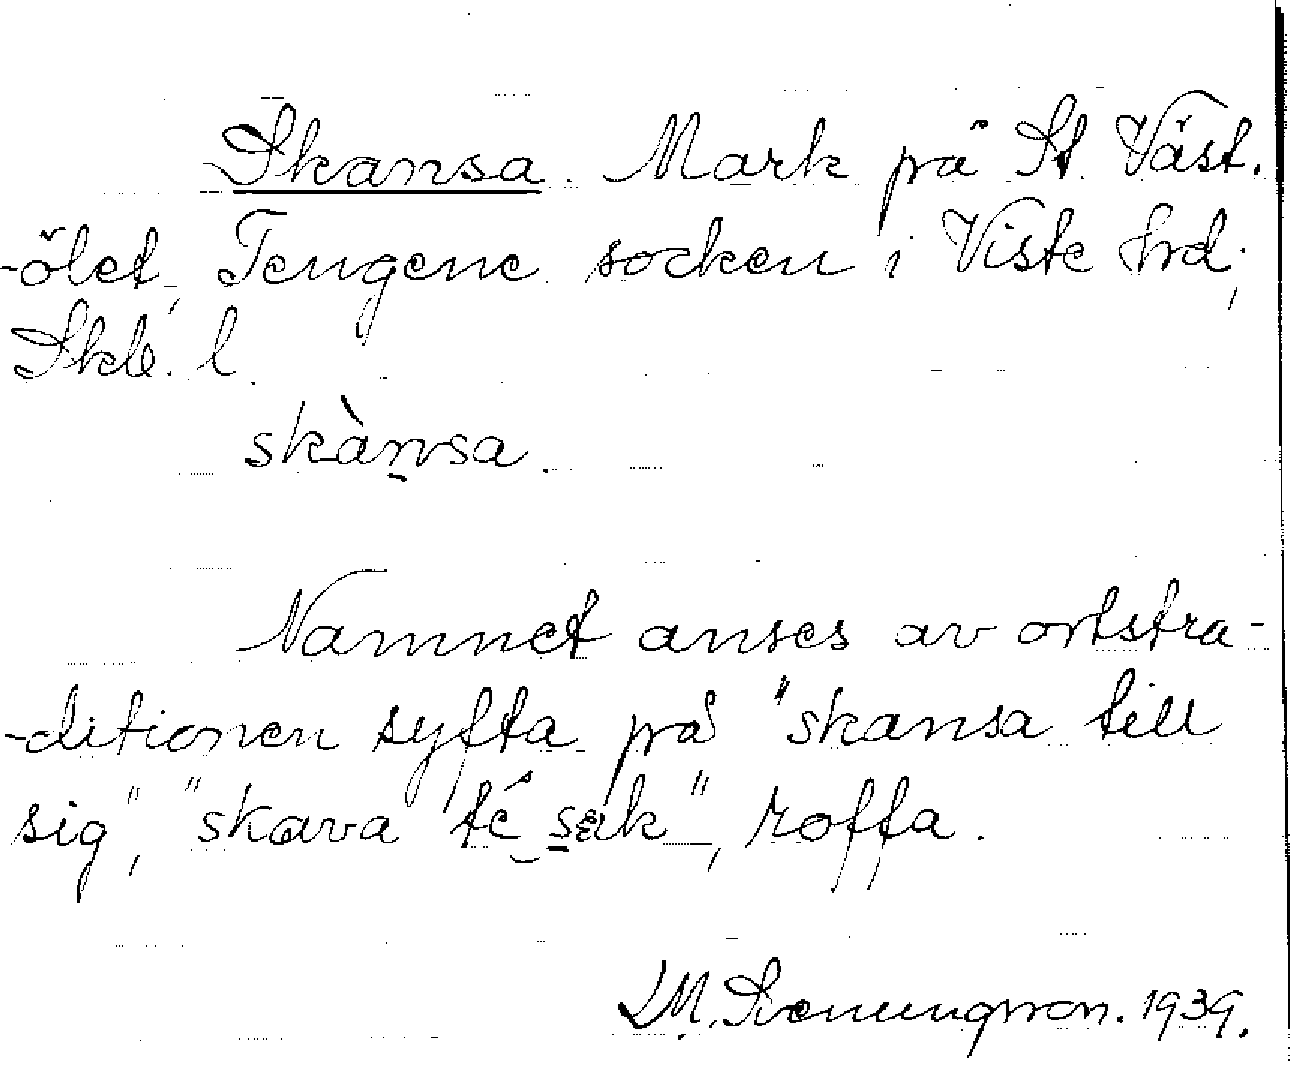 Skansa. Mark på St. Väst-
-ölet, Tengene socken i Viste hrd,
Skb. l.
skànsa.
Namnet anses av ortstra-
-ditionen syfta på "skansa till
sig", "skava té sæk", roffa.
L M. Svenungsson. 1939.